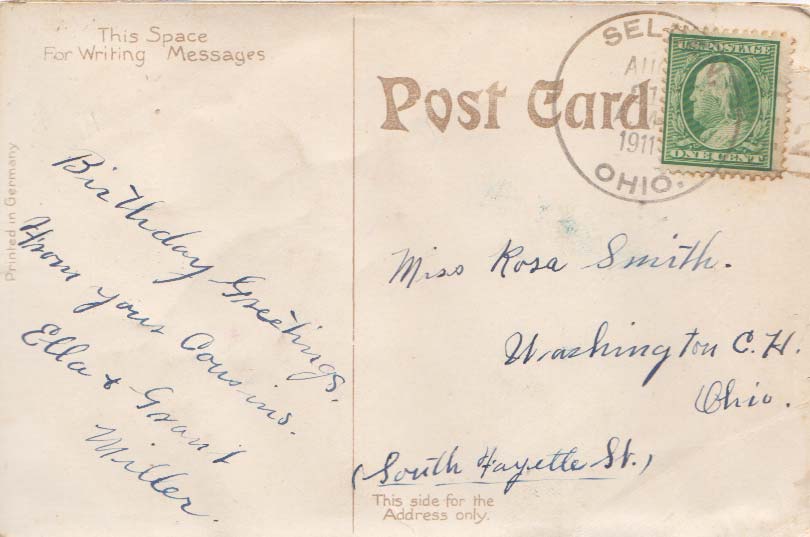 This Space
For Writing Messages
Printed in Germany
Birthday Greetings.
From your Cousins.
Ella & Grant
Miller.
Post Card
AUG
1911
OHIO.
U.S. POSTAGE
ONE CENT
Miss Rosa Smith.
Washington C. H.
Ohio.
(South Fayette St.)
This side for the
Address only.